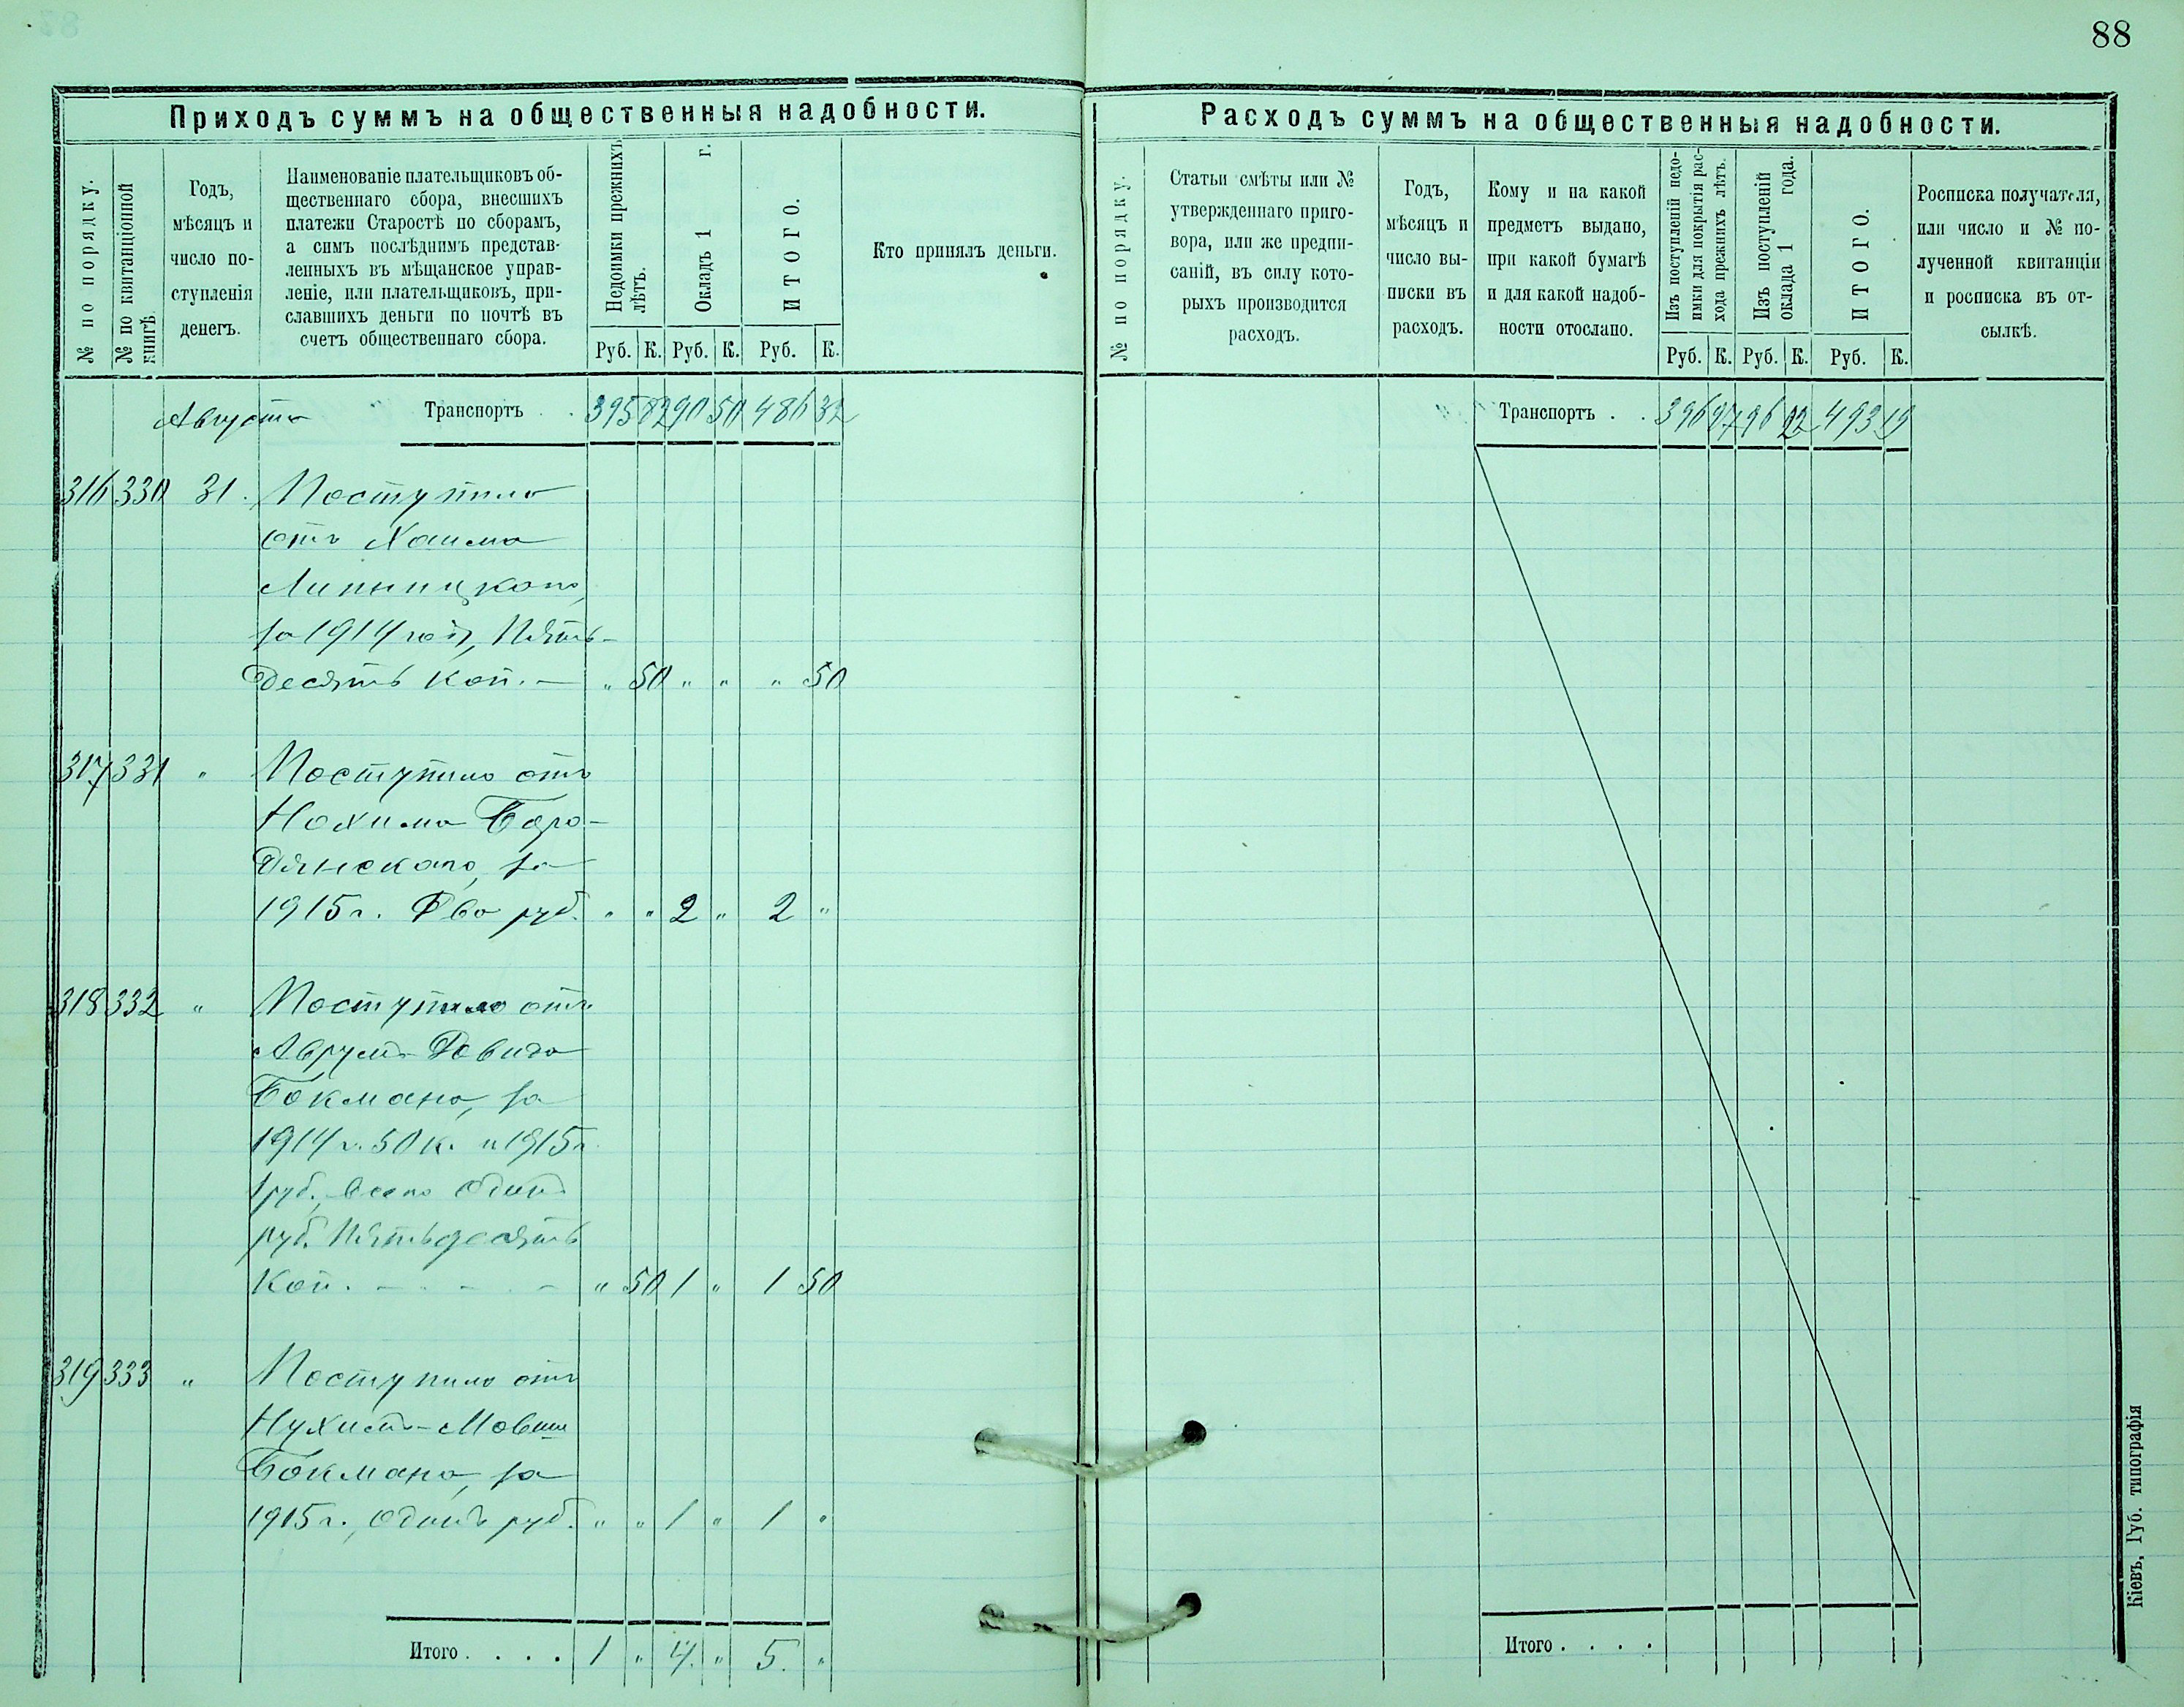 88
Приходъ суммъ на общественныя надобности.
№ по порядку.
№ по квитанціонной
книгѣ.
Годъ,
мѣсяцъ и
число по-
ступленія
денегъ.
Наименованіе плательщиковъ об-
щественнаго сбора, внесшихъ
платежи Старостѣ по сборамъ,
а симъ послѣднимъ представ-
ленныхъ въ мѣщанское управ-
леніе, или плательщиковъ, при-
славшихъ деньги по почтѣ въ
счетъ общественнаго сбора.
Недоимки прежнихъ
лѣтъ.
Окладъ 1 г.
ИТОГО.
Руб. К. Руб. К. Руб. К.
Кто принялъ деньги.
Августа Транспортъ . . 395 82 90 50 486 32
316 330 31. Поступило
отъ Хаима
Липницкаго,
за 1914 годъ, Пять-
десятъ коп. — " 50 " " " 50
317 331 " Поступило отъ
Нохима Боро-
дянскаго, за
1915 г. Два руб. " " 2 " 2 "
318 332 " Поступило отъ
Аврума-Довида
Бокмана, за
1914 г. 50 к. и 1915 г.
1 руб., всего Одинъ
руб. Пятьдесятъ
Коп. - - - " 50 1 " 1 50
319 333 " Поступило отъ
Нухима-Мовши
Бокмана, за
1915 г., Одинъ руб. " " 1 " 1 "
Итого . . . . 1 " 4. " 5. "
Расходъ суммъ на общественныя надобности.
№ по порядку.
Статьи смѣты или №
утвержденнаго приго-
вора, или же предпи-
саній, въ силу кото-
рыхъ производится
расходъ.
Годъ,
мѣсяцъ и
число вы-
писки въ
расходъ.
Кому и на какой
предметъ выдано,
при какой бумагѣ
и для какой надоб-
ности отослано.
Изъ поступленій недо-
имки для покрытія рас-
хода прежнихъ лѣтъ.
Изъ поступленій
оклада 1 года.
ИТОГО.
Руб. К. Руб. К. Руб. К.
Росписка получателя,
или число и № по-
лученной квитанціи
и росписка въ от-
сылкѣ.
Транспортъ . . 396 97 96 22 493 19
Итого . . . .
Кіевъ, Губ. типографія